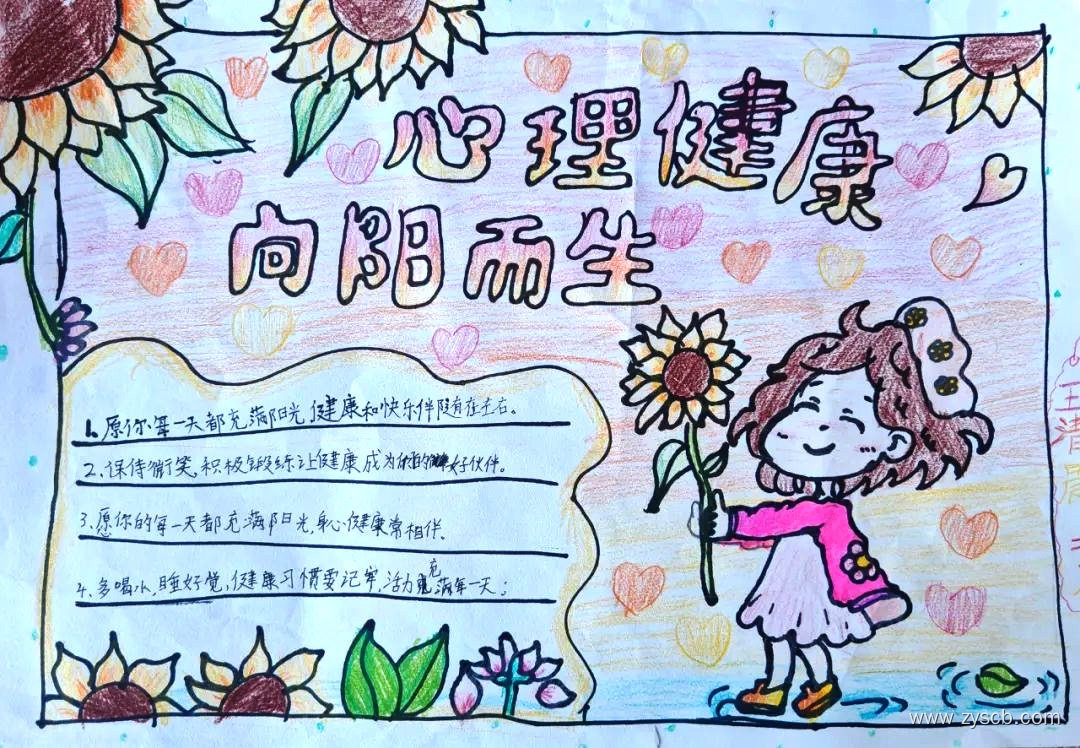 心理健康
向阳而生
1.愿你每一天都充满阳光,健康和快乐伴随在左右。
2、保持微笑,积极锻练让健康成为你的好伙伴。
3、愿你的每一天都充满阳光,身心健康常相伴。
4、多喝水,睡好觉,健康习惯要记牢,活力充满每一天;
王清
www.zyscb.com